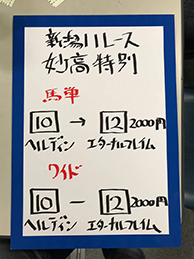 新潟11レース
妙高特別
馬単
10 → 12 2000円
ヘルディン エターカルフレイム
ワイド
10 − 12 2000円
ヘルディン エターカルフレイム